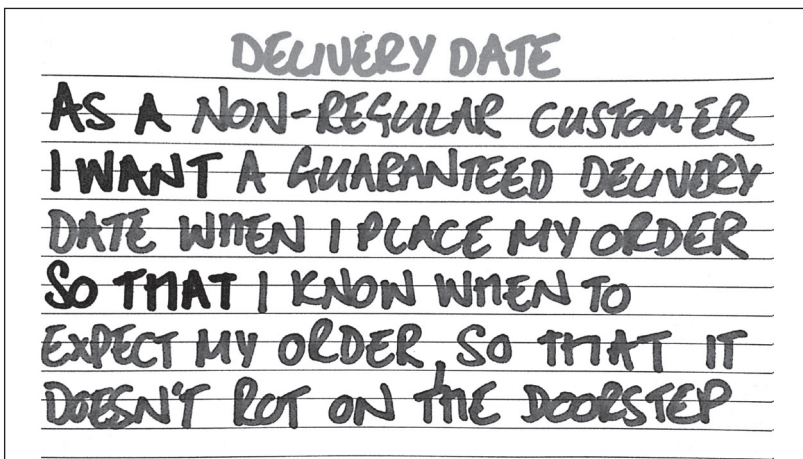 DELIVERY DATE
AS A NON-REGULAR CUSTOMER
I WANT A GUARANTEED DELIVERY
DATE WHEN I PLACE MY ORDER
SO THAT I KNOW WHEN TO
EXPECT MY ORDER, SO THAT IT
DOESN'T ROT ON THE DOORSTEP